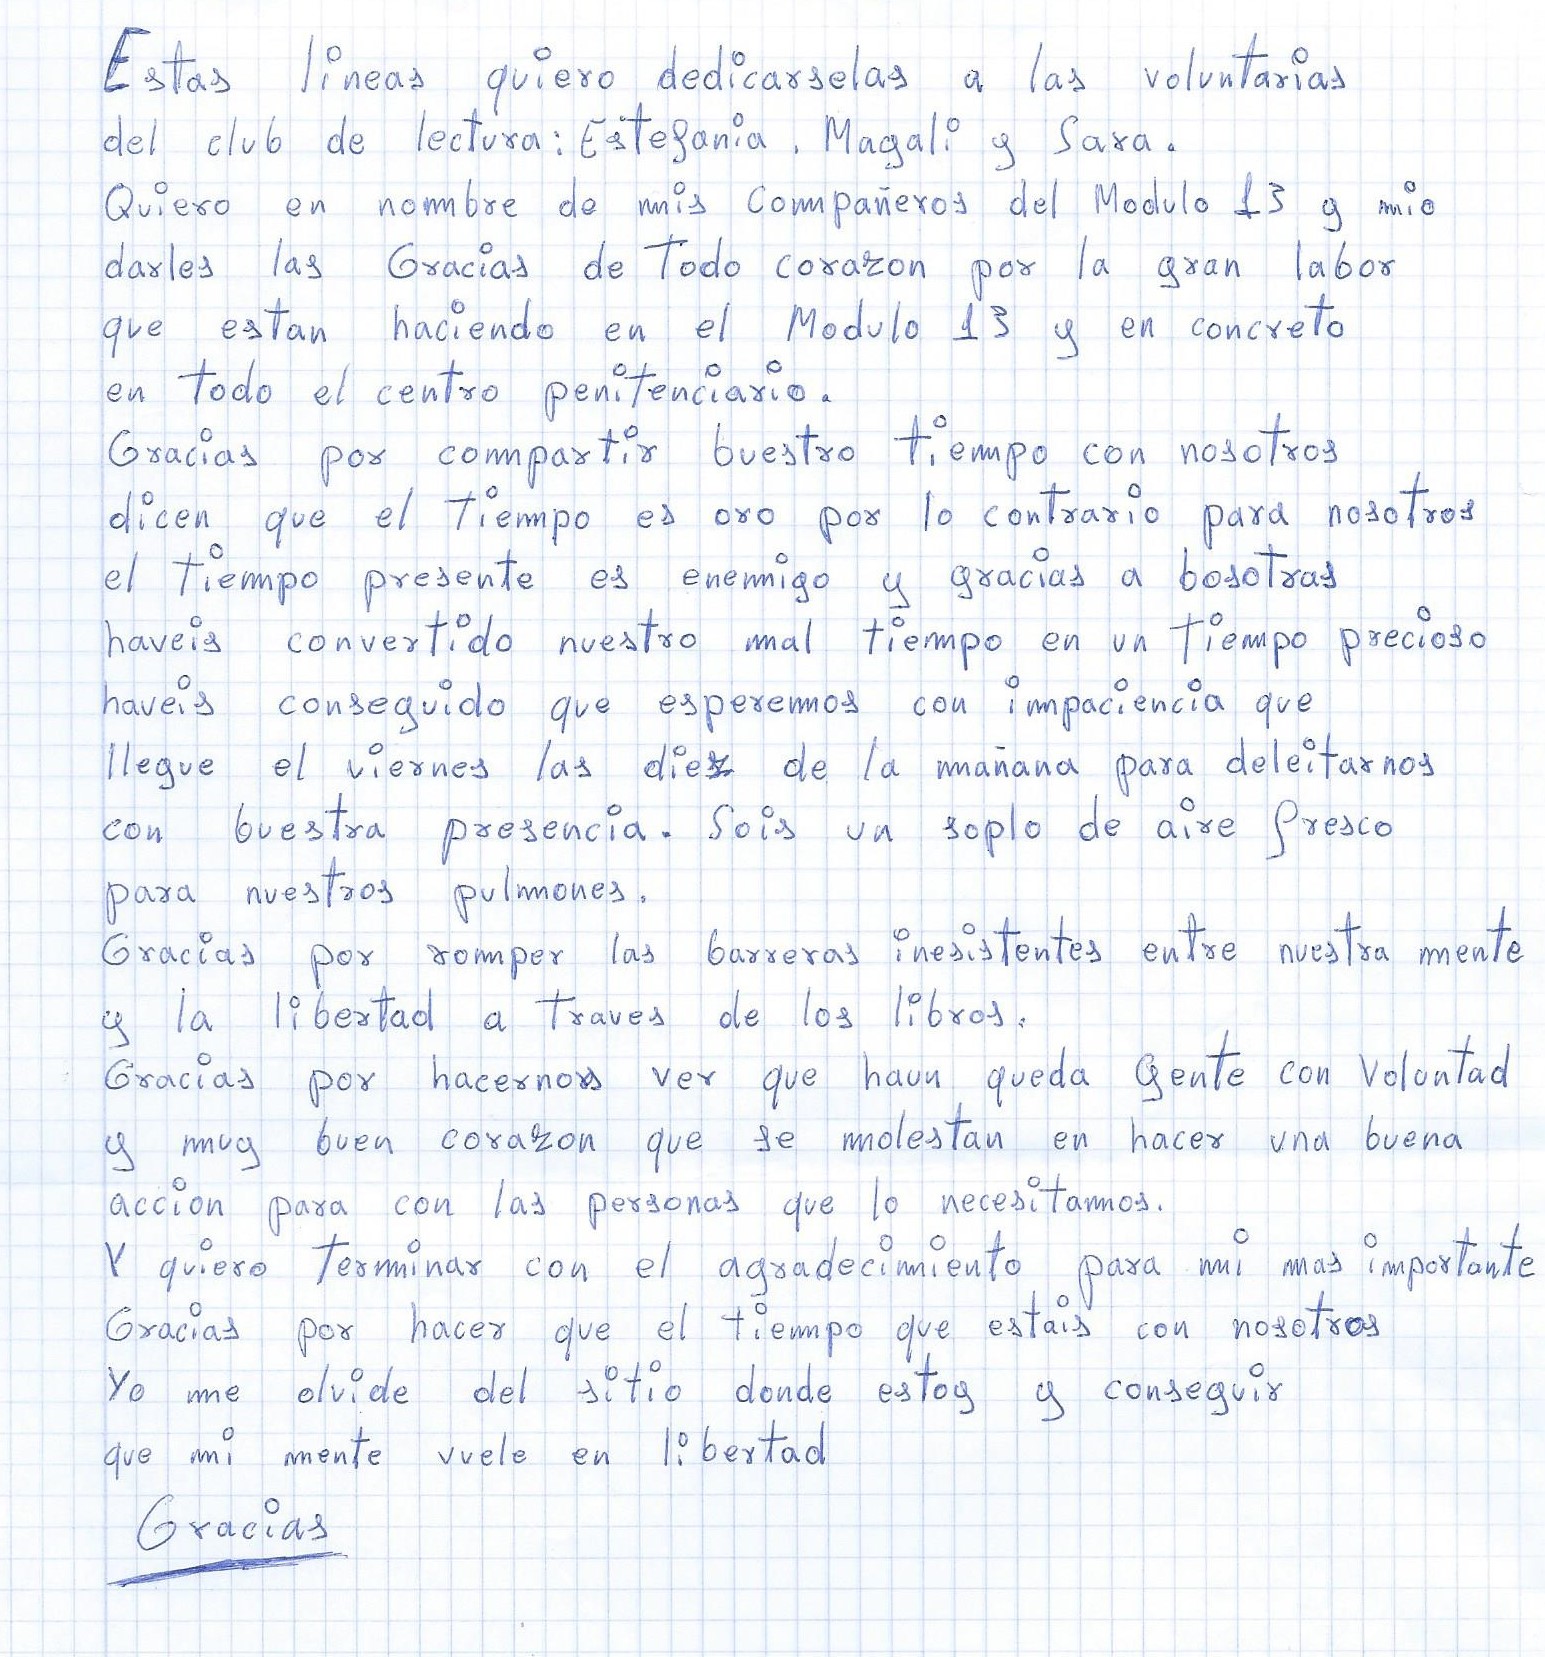 Estas lineas quiero dedicarselas a las voluntarias
del club de lectura: Estefania, Magali y Sara.
Quiero en nombre de mis Compañeros del Modulo 13 y mio
darles las Gracias de Todo corazon por la gran labor
que estan haciendo en el Modulo 13 y en concreto
en Todo el centro penitenciario.
Gracias por compartir buestro tiempo con nosotros
dicen que el Tiempo es oro por lo contrario para nosotros
el Tiempo presente es enemigo y gracias a bosotras
haveis convertido nuestro mal tiempo en un Tiempo precioso
haveis conseguido que esperemos con impaciencia que
llegue el viernes las diez de la mañana para deleitarnos
con buestra presencia. Sois un soplo de aire fresco
para nuestros pulmones.
Gracias por romper las barreras inesistentes entre nuestra mente
y la libertad a Traves de los libros.
Gracias por hacernos ver que haun queda Gente con Voluntad
y muy buen corazon que se molestan en hacer una buena
accion para con las personas que lo necesitamos.
Y quiero Terminar con el agradecimiento para mi mas importante
Gracias por hacer que el tiempo que estais con nosotros
Yo me olvide del sitio donde estoy y conseguir
que mi mente vuele en libertad
Gracias